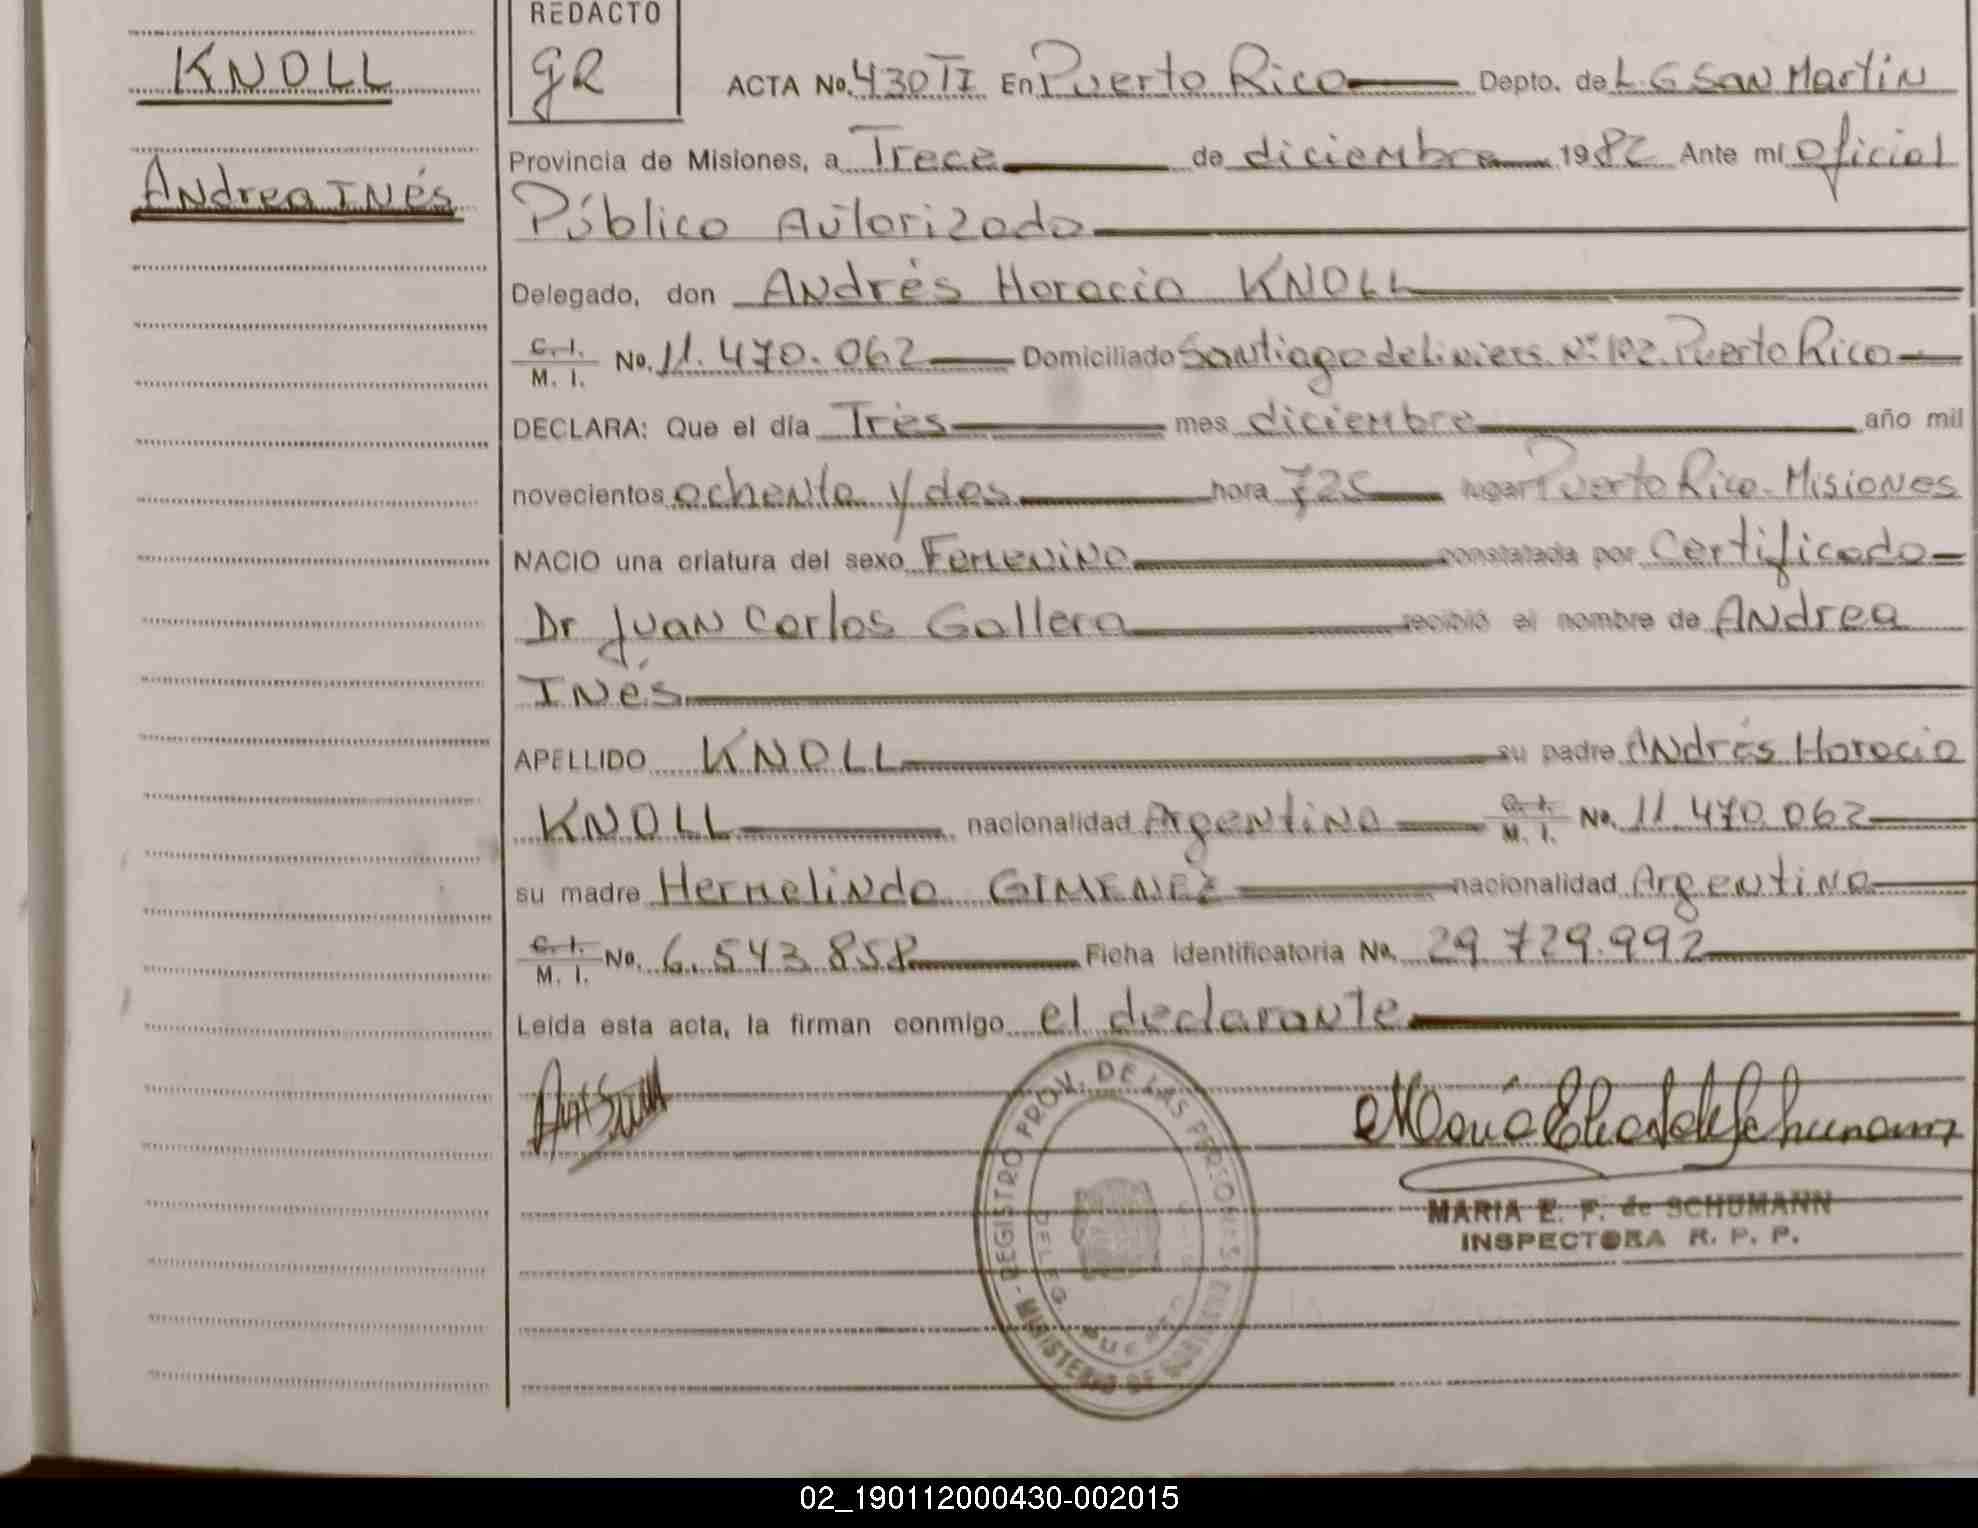 KNOLL
Andrea INés
REDACTO
gR
ACTA No. 430 TI En Puerto Rico Depto. de L G San Martín
Provincia de Misiones, a Trece de diciembre 1982 Ante mí Oficial
Público Autorizado
Delegado, don Andrés Horacio KNOLL
C. I. M. I. No. 11.470.062 Domiciliado Santiago de Liniers Nº 192 Puerto Rico
DECLARA: Que el día Tres mes diciembre año mil
novecientos ochenta y dos hora 725 lugar Puerto Rico. Misiones
NACIO una criatura del sexo Femenino constatada por Certificado
Dr Juan Carlos Gallera recibió el nombre de Andrea
INés
APELLIDO KNOLL su padre Andrés Horacio
KNOLL nacionalidad Argentino C. I. M. I. No. 11.470.062
su madre Hermelinda GIMENEZ nacionalidad Argentina
C. I. M. I. No. 6.543.858 Ficha identificatoria No. 29.729.992
Leída esta acta, la firman conmigo el declarante
REGISTRO PROV. DE LAS PERSONAS
MINISTERIO DE GOBIERNO
DELEG. PUERTO
MARIA E. F. de SCHUMANN
INSPECTORA R. P. P.
02_190112000430-002015